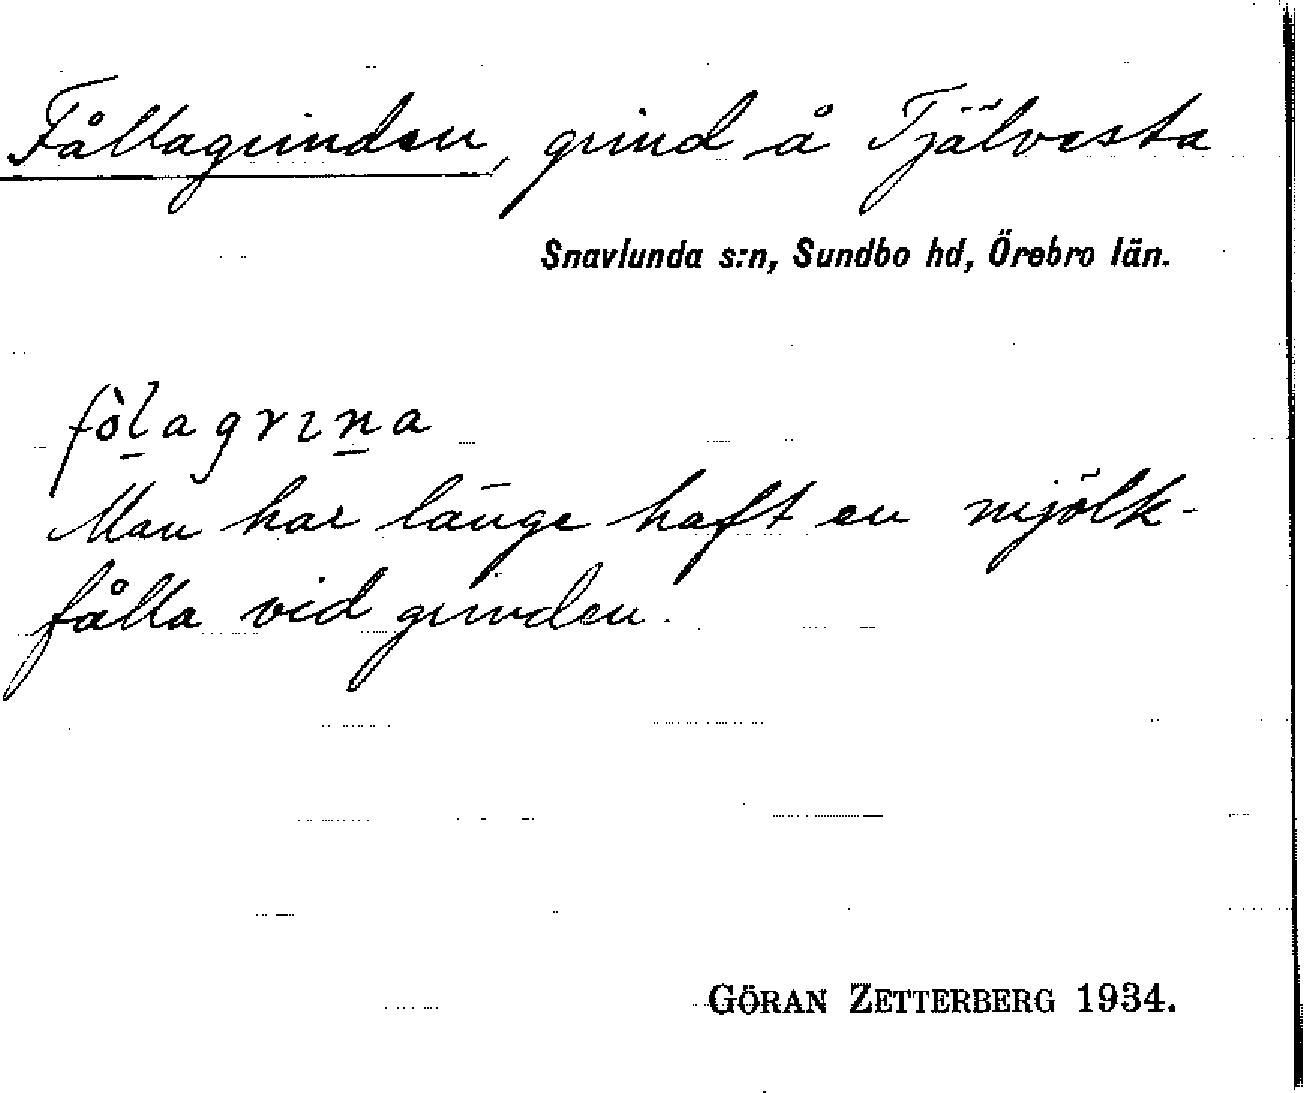 Fållagrinden, grind å Tjälvesta
Snavlunda s:n, Sundbo hd, Örebro län.
fòl̲agrɩn̲a
Man har länge haft en mjölk-
fålla vid grinden.
GÖRAN ZETTERBERG 1934.